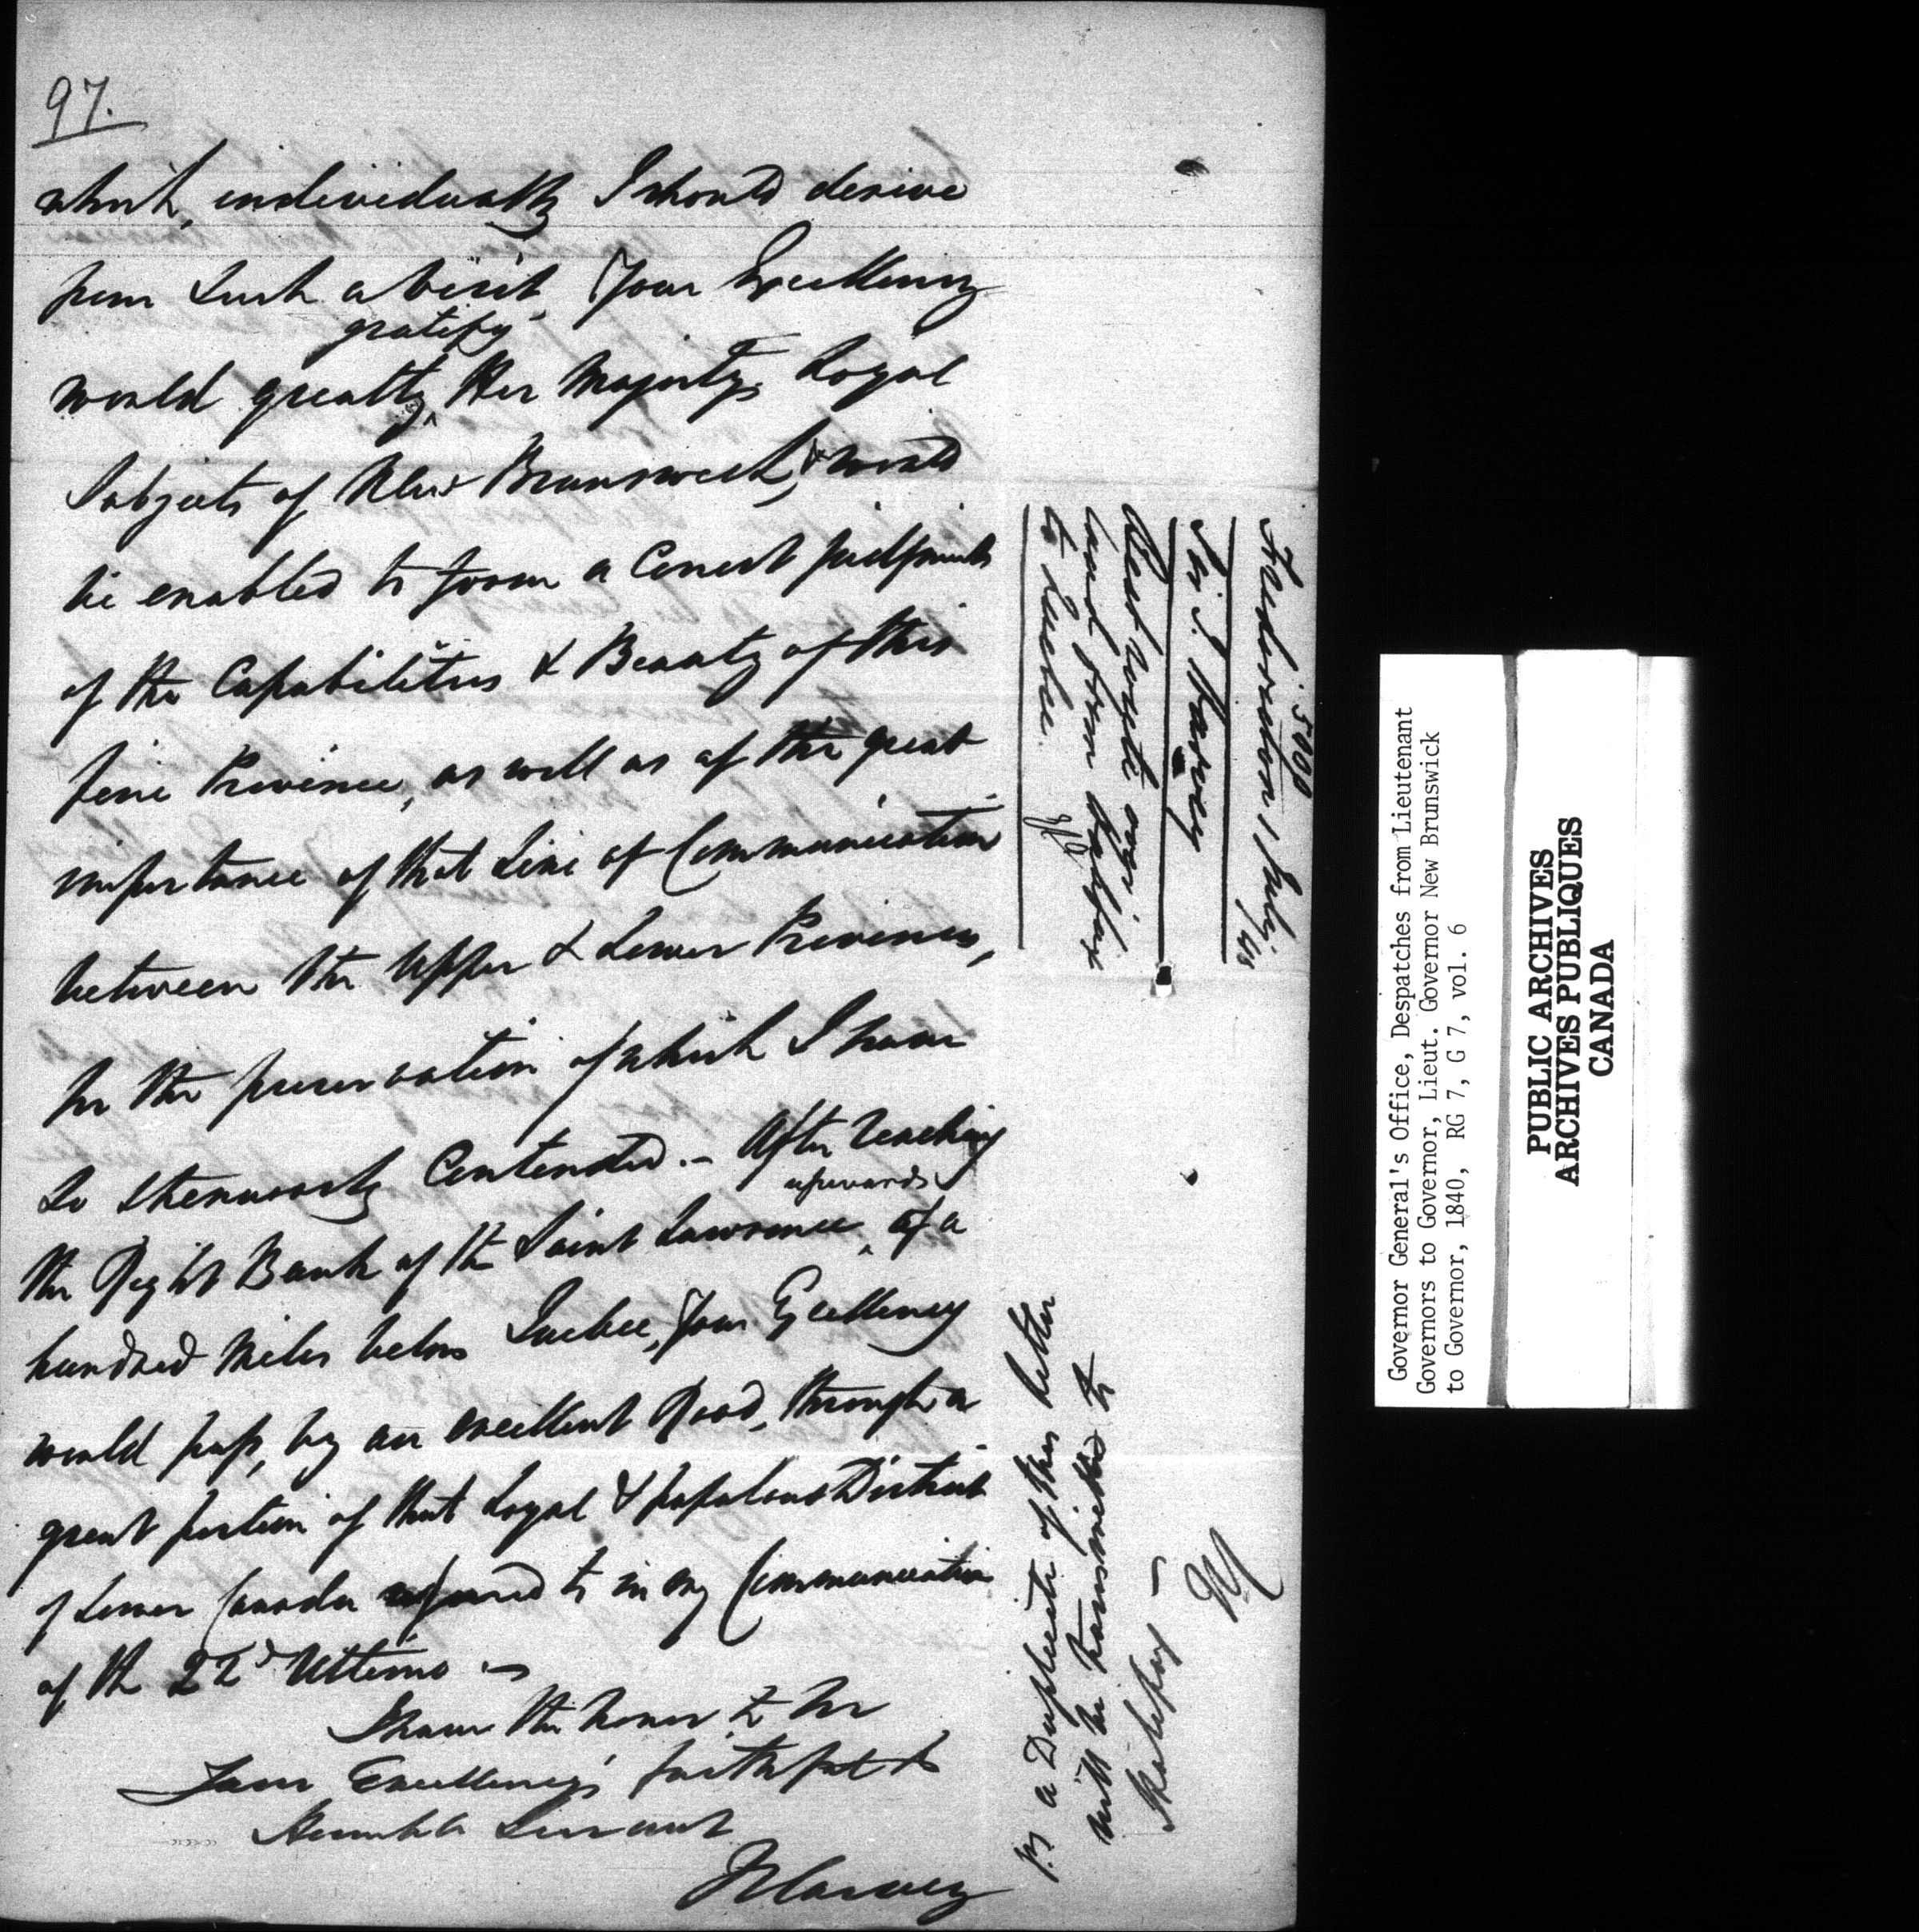 97.
which, individually I should derive
from such a visit, Your Excellency
gratify
would greatly Her Majesty's Loyal
Subjects of New Brunswick, & would
be enabled to form a Correct judgment
of the Capabilities & Beauty of this
fine Province, as well as of the great
importance of that Line of Communication
between the Upper & Lower Provinces,
for the preservation of which I have
so strenuously Contended. – After reaching
upwards
the Right Bank of the Saint Lawrence, of a
hundred Miles below Quebec, Your Excellency
would pass, by an excellent Road, through a
great portion of that Loyal & populous District
of Lower Canada referred to in my Communication
of the 22d Ultimo. –
I have the honor to be
Your Excellency's faithful &
Humble Servant
J Harvey
P.S. a Duplicate of this letter
will be transmitted to
Halifax –
5000
Fredericton 1 July
Sir J. Harvey
Best route
land from Halifax
to Quebec.
Governor General's Office, Despatches from Lieutenant
Governors to Governor, Lieut. Governor New Brunswick
to Governor, 1840, RG 7, G 7, vol. 6
PUBLIC ARCHIVES
ARCHIVES PUBLIQUES
CANADA